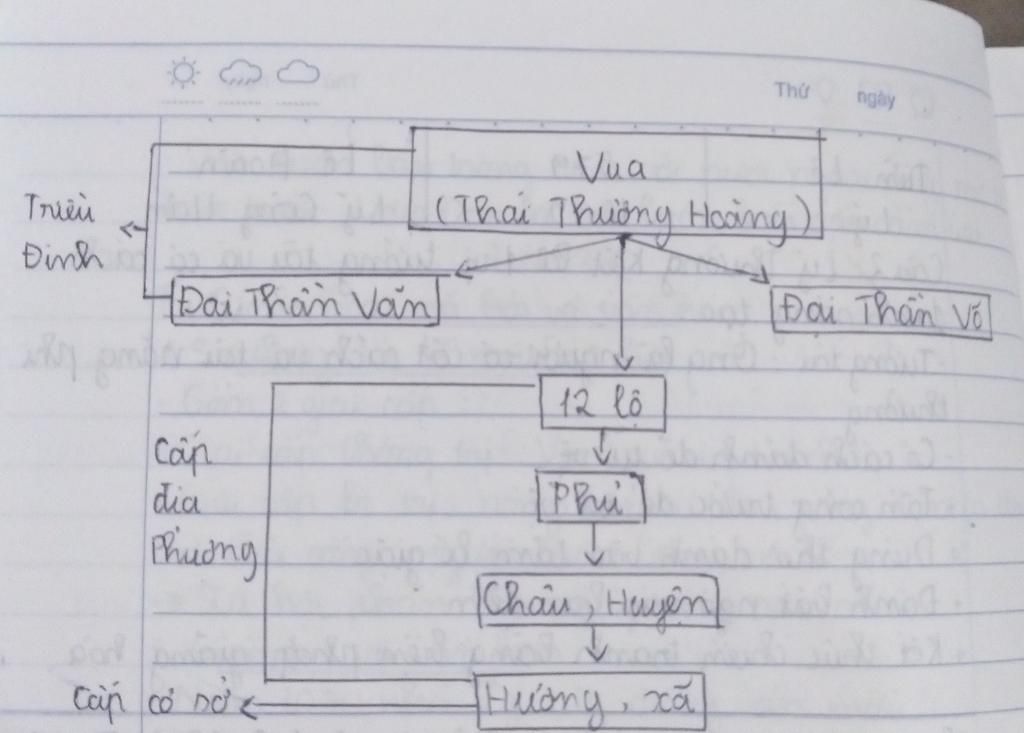 Thứ ngày
Vua
(Thái Thượng Hoàng)
Triều
Đình
Đại Thần Văn
Đại Thần Võ
12 lộ
Phủ
Cấp
địa
Phương
Châu, Huyện
Hương, xã
Cấp cơ sở